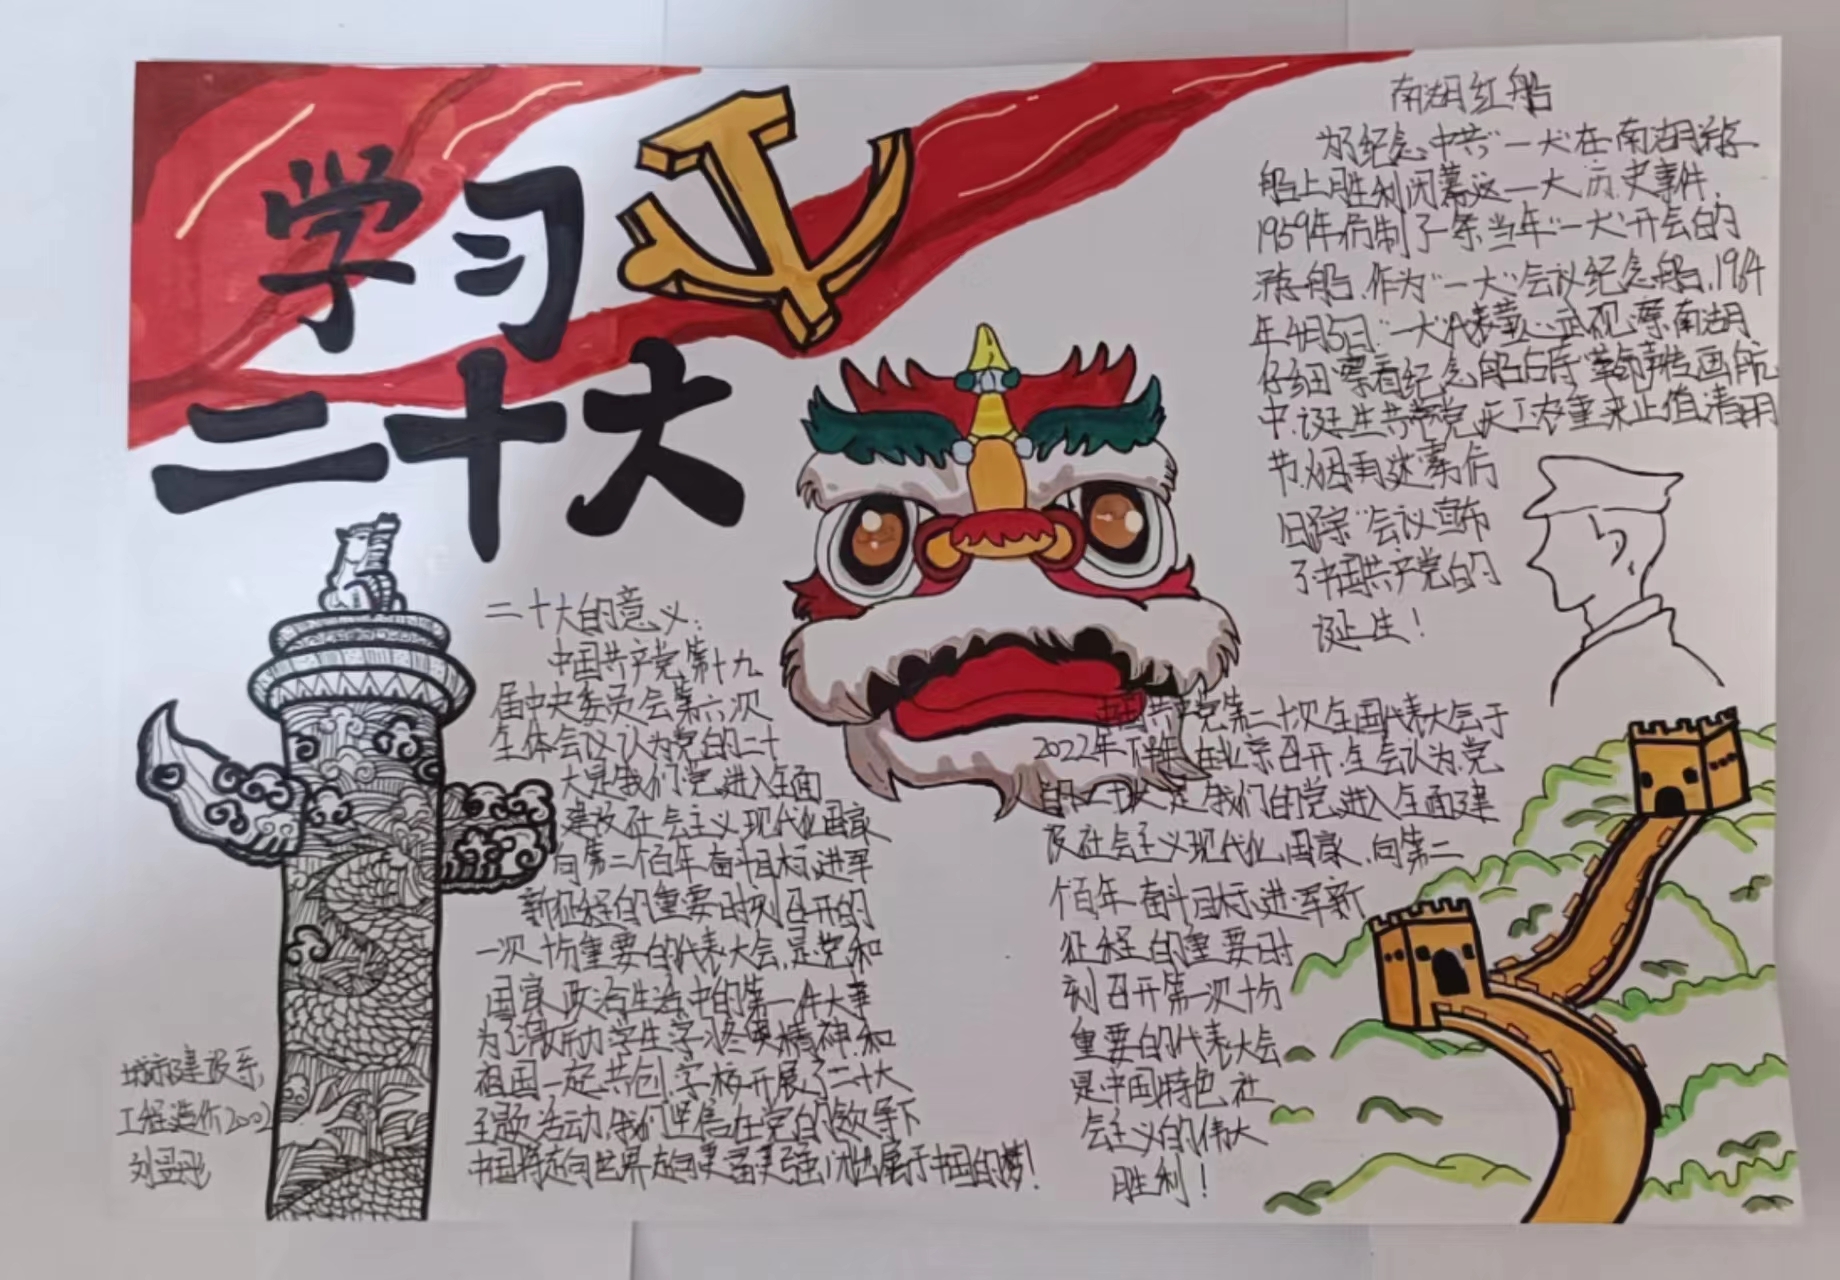 学习
二十大
南湖红船
为了纪念中共"一大"在南湖游
船上胜利闭幕这一大历史事件,
1959年仿制了一条当年"一大"开会的
游船.作为"一大"会议纪念船,1964
年4月5日."一大"代表董必武视察南湖
仔细察看纪念船后
中.诞生共党
节.烟雨迷蒙仿
旧踪"会议宣布
了中国共产党的
诞生!
二十大的意义:
中国共产党第十九
届中央委员会第六次
全体会议认为党的二十
大是我们党进入全面
建设社会主义现代化国家
向第二个百年奋斗目标进军
新征程的重要时刻召开的
一次十分重要的代表大会.是党和
国家政治生活中的第一件大事
为了激励学生学 精神.和
祖国一起共创.学校开展了二十大
主题活动.我们坚信在党的领导下
中国将走向世界走向更富更强 属于中国的梦!
中国共产党第二十次全国代表大会于
2022年下半年在北京召开.全会认为.党
的二十大是我们的党进入全面建
设社会主义现代化国家.向第二
个百年奋斗目标进军新
征程的重要时
刻召开第一次十分
重要的代表大会
是中国特色社
会主义的伟大
胜利!
城市建设系,
工程造价2002
刘